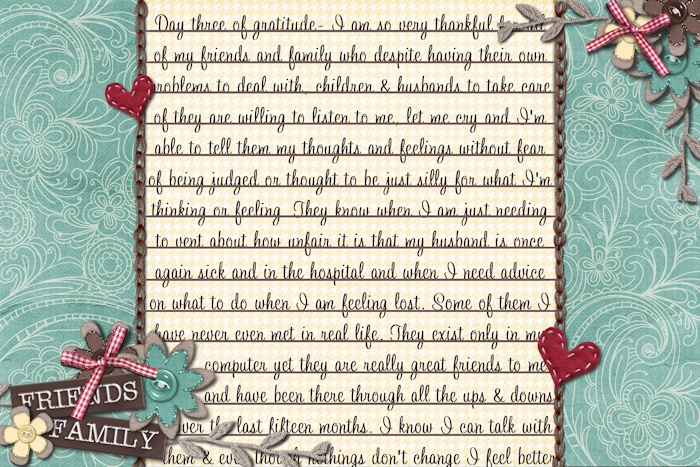 Day three of gratitude- I am so very thankful for all
of my friends and family who despite having their own
problems to deal with, children & husbands to take care
of they are willing to listen to me, let me cry and I'm
able to tell them my thoughts and feelings without fear
of being judged or thought to be just silly for what I'm
thinking or feeling. They know when I am just needing
to vent about how unfair it is that my husband is once
again sick and in the hospital and when I need advice
on what to do when I am feeling lost. Some of them I
have never even met in real life. They exist only in my
computer yet they are really great friends to me
and have been there through all the ups & downs
over the last fifteen months. I know I can talk with
them & even though nothings don't change I feel better
FRIENDS
FAMILY